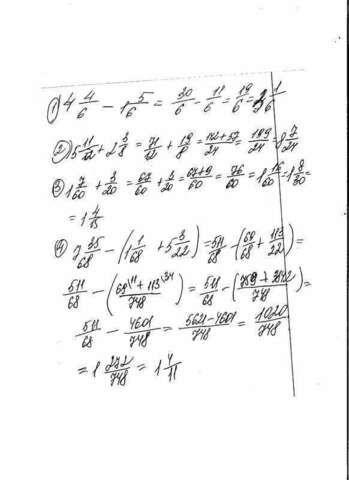 ① 4 4/6 − 1 5/6 = 30/6 − 11/6 = 19/6 = 3 1/6
② 5 11/12 + 2 3/8 = 71/12 + 19/8 = 142+57/24 = 199/24 = 8 7/24
③ 1 7/60 + 3/20 = 67/60 + 3/20 = 67+9/60 = 76/60 = 1 16/60 = 1 8/30 =
= 1 4/15
④ 7 35/68 − (1 1/68 + 5 3/22) = 511/68 − (69/68 + 113/22) =
511/68 − (69\11 + 113\34/748) = 511/68 − (759 + 3842/748) =
511/68 − 4601/748 = 5621−4601/748 = 1020/748
= 1 272/748 = 1 4/11